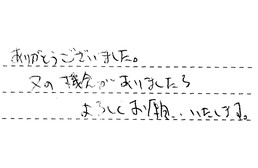 ありがとうございました。
又の機会がありましたら
よろしくお願いいたします。